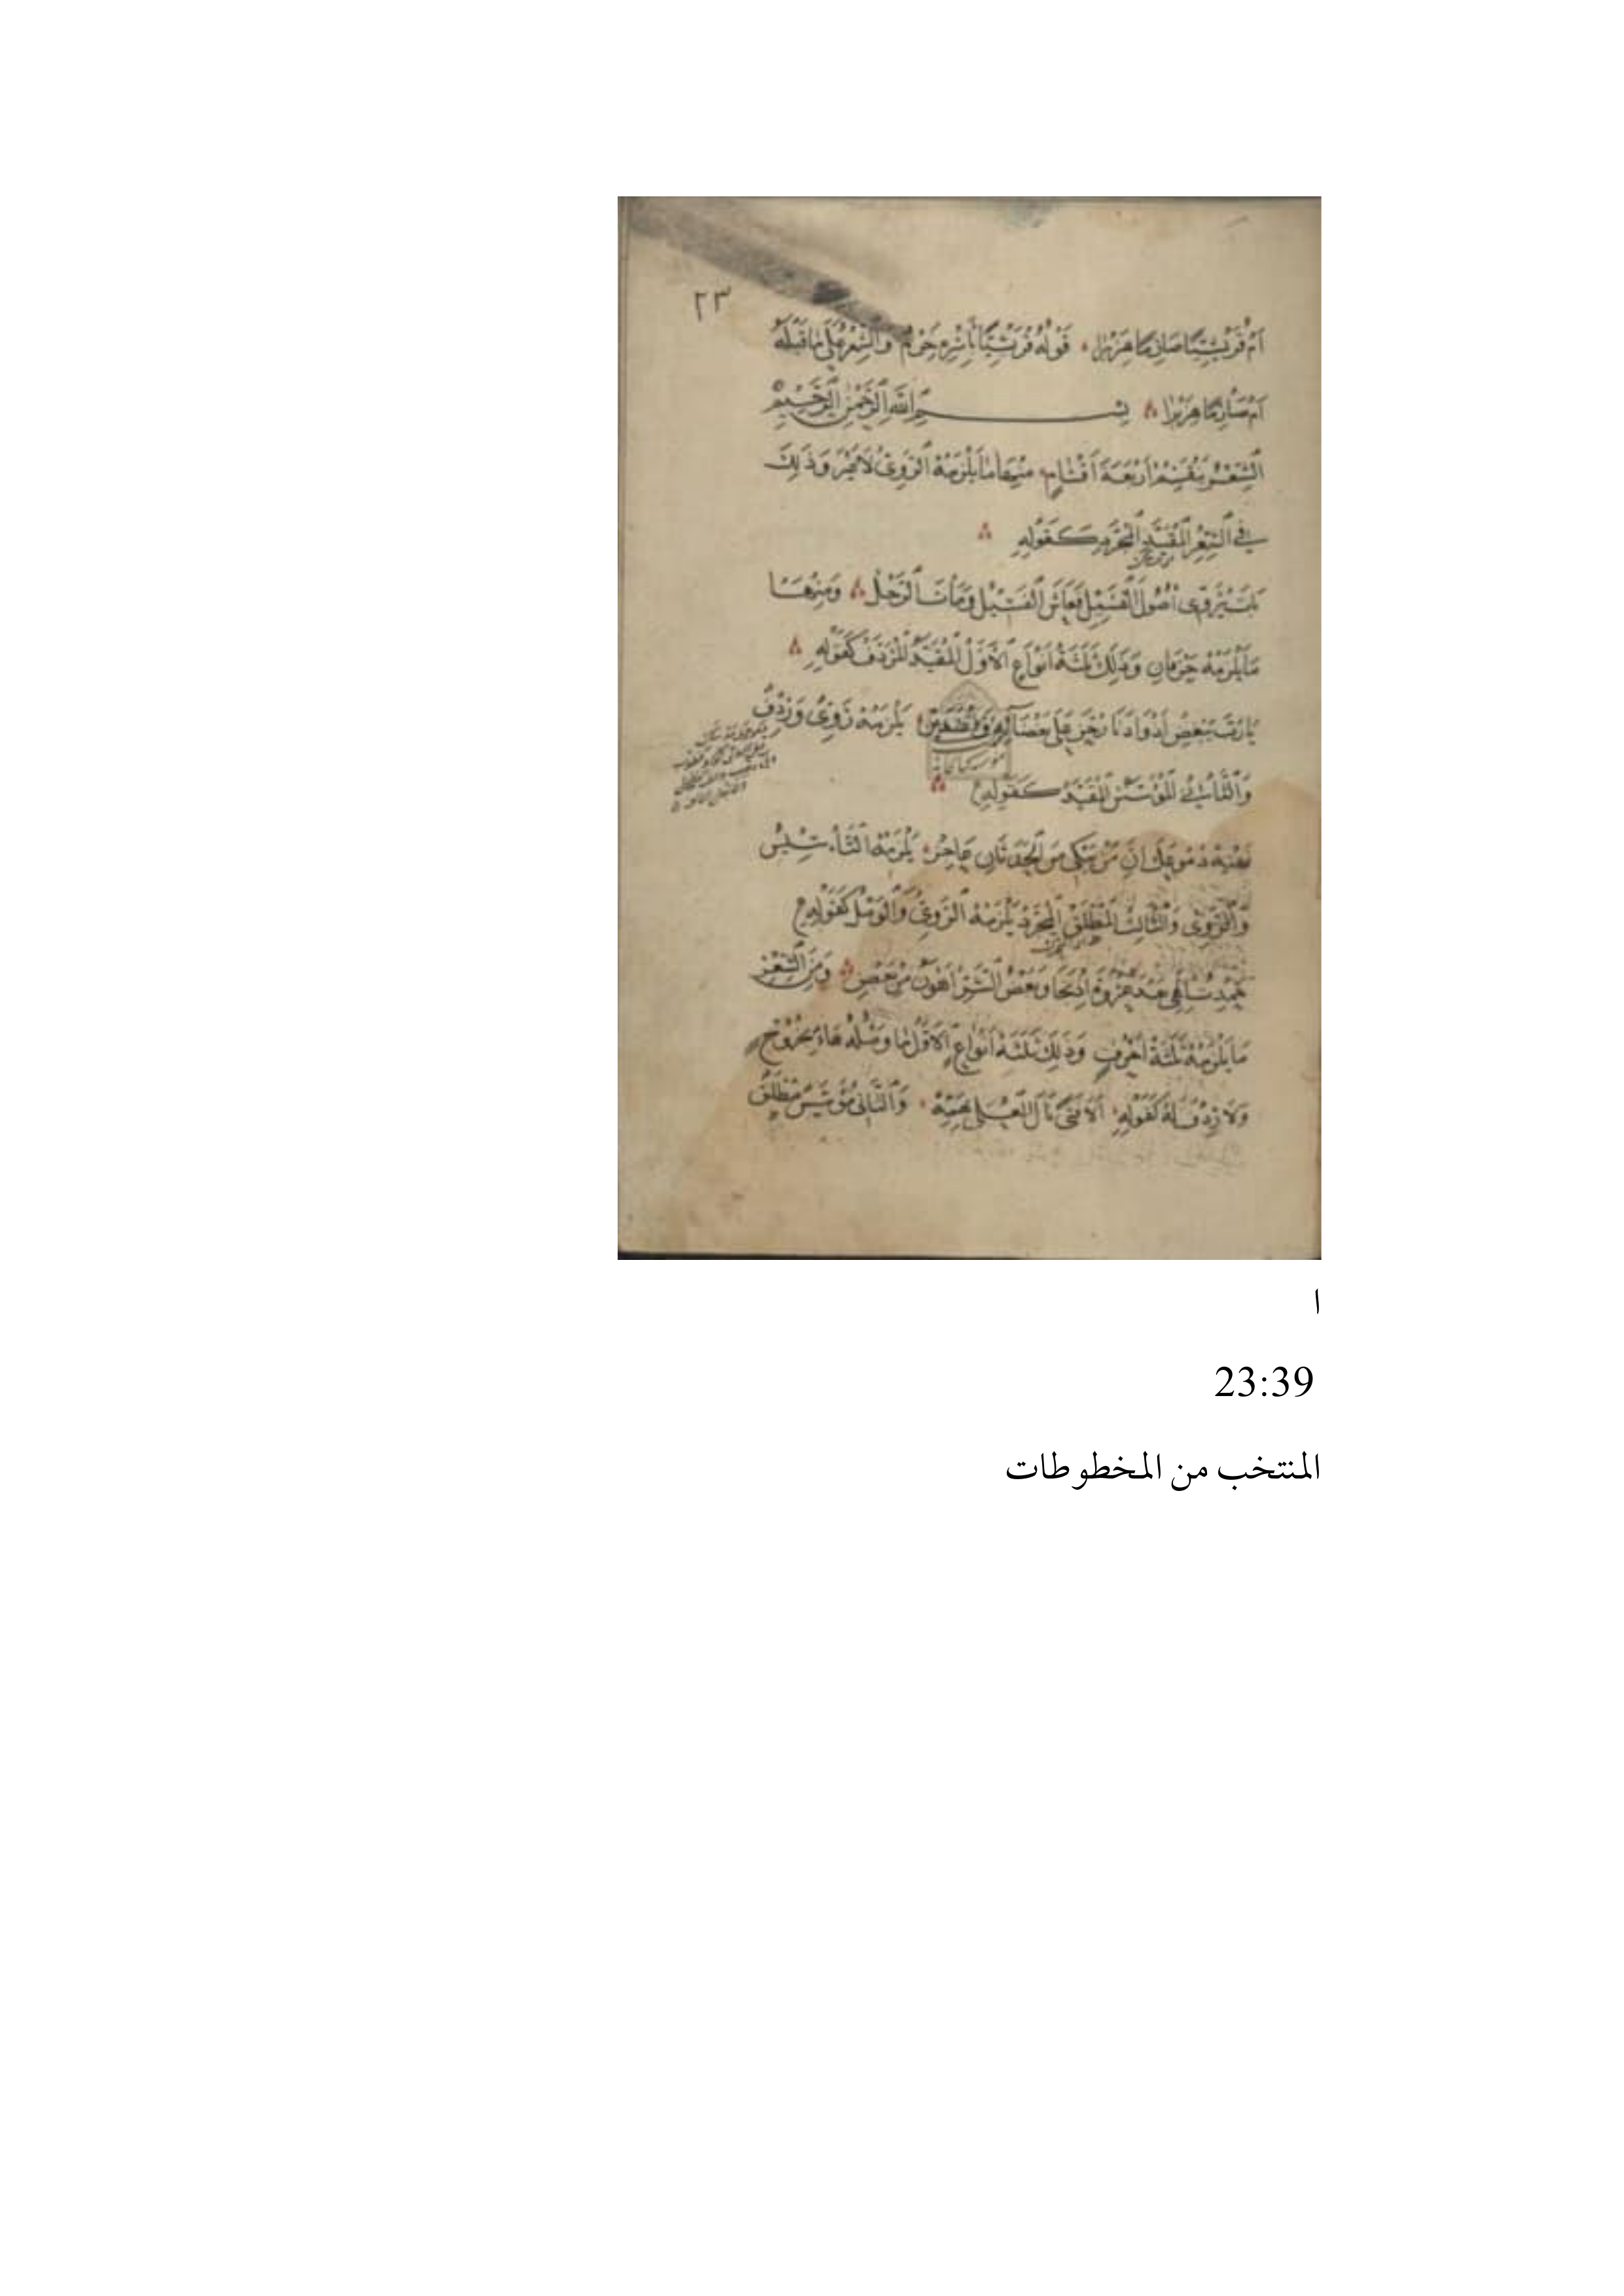 ٢٣
أم قرشيا صارما هزبرا قوله قرشيا بأسره خزم والشعر على ما قبله
أم صارما هزبرا بسم الله الرحمن الرحيم
الشعر ينقسم أربعة أقسام منها ما يلزمه الروي لا غير وذلك
في الشعر المقيد المجرد كقوله
أصول الفسيل فعاش الفسيل ومات الرجل ومنها
ما يلزمه حرفان وذلك ثلثة أنواع الأول المقيد المردف كقوله
يا رب يلزمه روي وردف
والثاني المؤسس المقيد كقوله
نهنه دموعك ان من يبكي من الحدثان عاجز يلزمه التأسيس
والروي والثالث المطلق المجرد يلزمه الروي والوصل كقوله
حمدت الهي بعد عروة اذ نجا وبعض الشر أهون من بعض ومن الشعر
ما يلزمه ثلثة أحرف وذلك ثلثة أنواع الأول ما وصله هاء بخروج
ولا ردف له كقوله ألا فتى نال العلى بهمه والثاني مؤسس مطلق
ا
23:39
المنتخب من المخطوطات